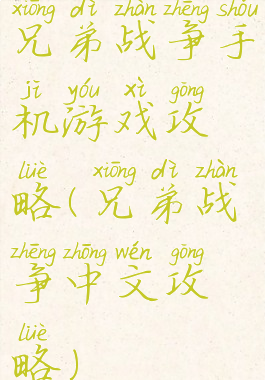 xiōng dì zhàn zhēng shǒu
兄弟战争手
jī yóu xì gōng
机游戏攻
lüè xiōng dì zhàn
略(兄弟战
zhēng zhōng wén gōng
争中文攻
lüè
略)